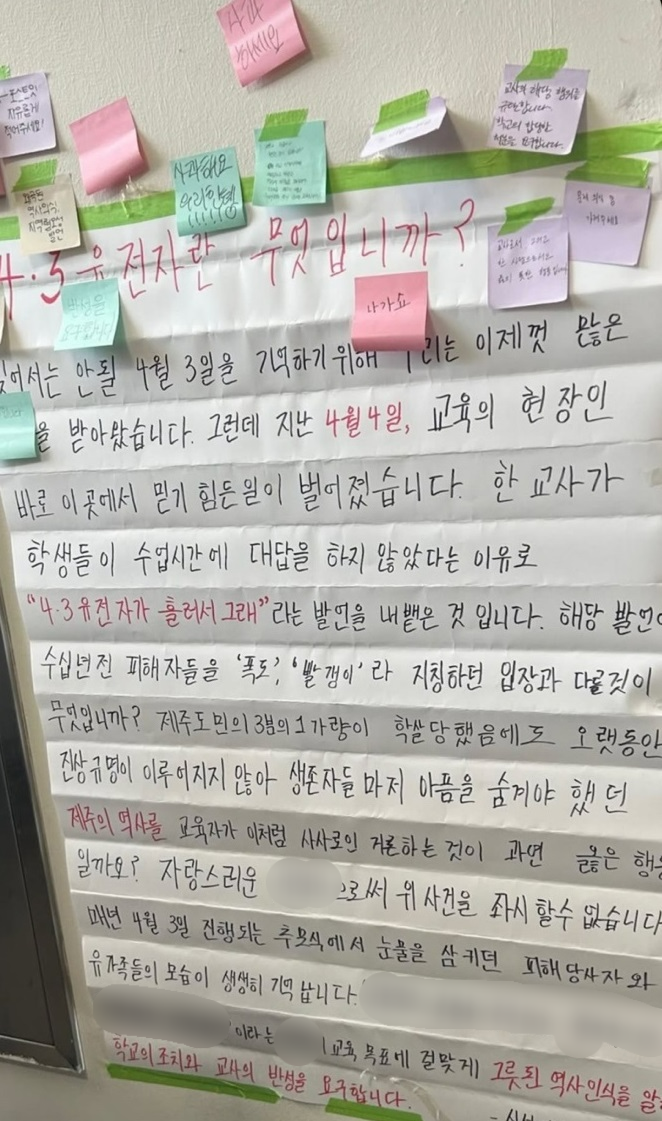 사과
하세요
포스트잇
자유롭게
적어주세요!
교사의 해당 행위를
규탄합니다.
학교의 합당한
을 요구합니다.
사과해요
우리한텐
!!!!!!
잘못된
역사의식,
지역혐오성
발언
4·3 유전자란 무엇입니까?
반성을
요구합니다
나가쇼
있어서는 안될 4월 3일을 기억하기 위해 우리는 이제껏 많은
을 받아왔습니다. 그런데 지난 4월 4일, 교육의 현장인
바로 이곳에서 믿기 힘든일이 벌어졌습니다. 한 교사가
학생들이 수업시간에 대답을 하지 않았다는 이유로
"4·3 유전자가 흘러서 그래" 라는 발언을 내뱉은 것 입니다. 해당 발언
수십년전 피해자들을 '폭도', '빨갱이' 라 지칭하던 입장과 다를것이
무엇입니까? 제주도민의 3분의 1 가량이 학살 당했음에도 오랫동안
진상규명이 이루어지지 않아 생존자들 마저 아픔을 숨겨야 했던
제주의 역사를 교육자가 이처럼 사사로이 거론하는 것이 과연 옳은 행동
일까요? 자랑스러운 으로써 위 사건을 좌시 할수 없습니다
매년 4월 3일 진행되는 추모식에서 눈물을 삼키던 피해당사자와
유가족들의 모습이 생생히 기억 납니다.
이라는 교육 목표에 걸맞게 그릇된 역사인식을 알
학교의 조치와 교사의 반성을 요구합니다.